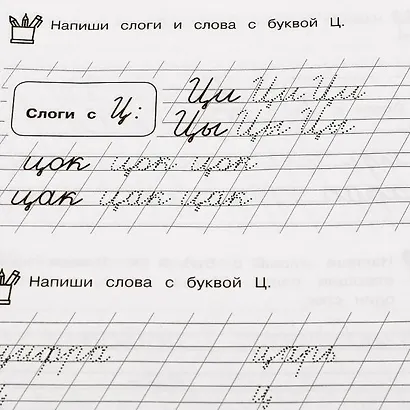 Напиши слоги и слова с буквой Ц.
Слоги с Ц:
Ци Ци Ци
Цы Цы Цы
цок цок цок
цак цак цак
Напиши слова с буквой Ц.
цифра царь
ц